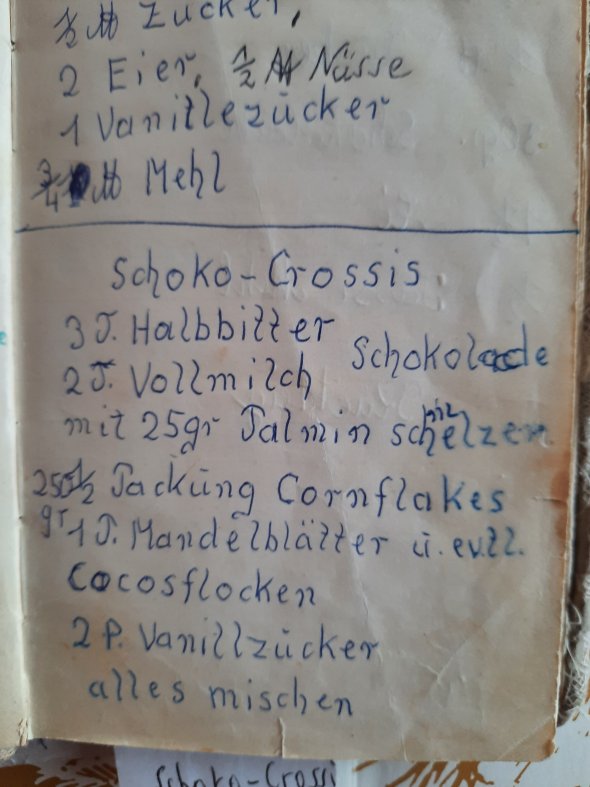 1/2 ℔ Zucker,
2 Eier, 1/2 ℔ Nüsse
1 Vanillezucker
3/4 ℔ Mehl
Schoko-Crossis
3 T. Halbbitter
Schokolade
2 T. Vollmilch
mit 25gr Palmin schmelzen
250gr 1/2 Packung Cornflakes
1 P. Mandelblätter u. evtl.
Cocosflocken
2 P. Vanillzucker
alles mischen
Schoko-Crossi